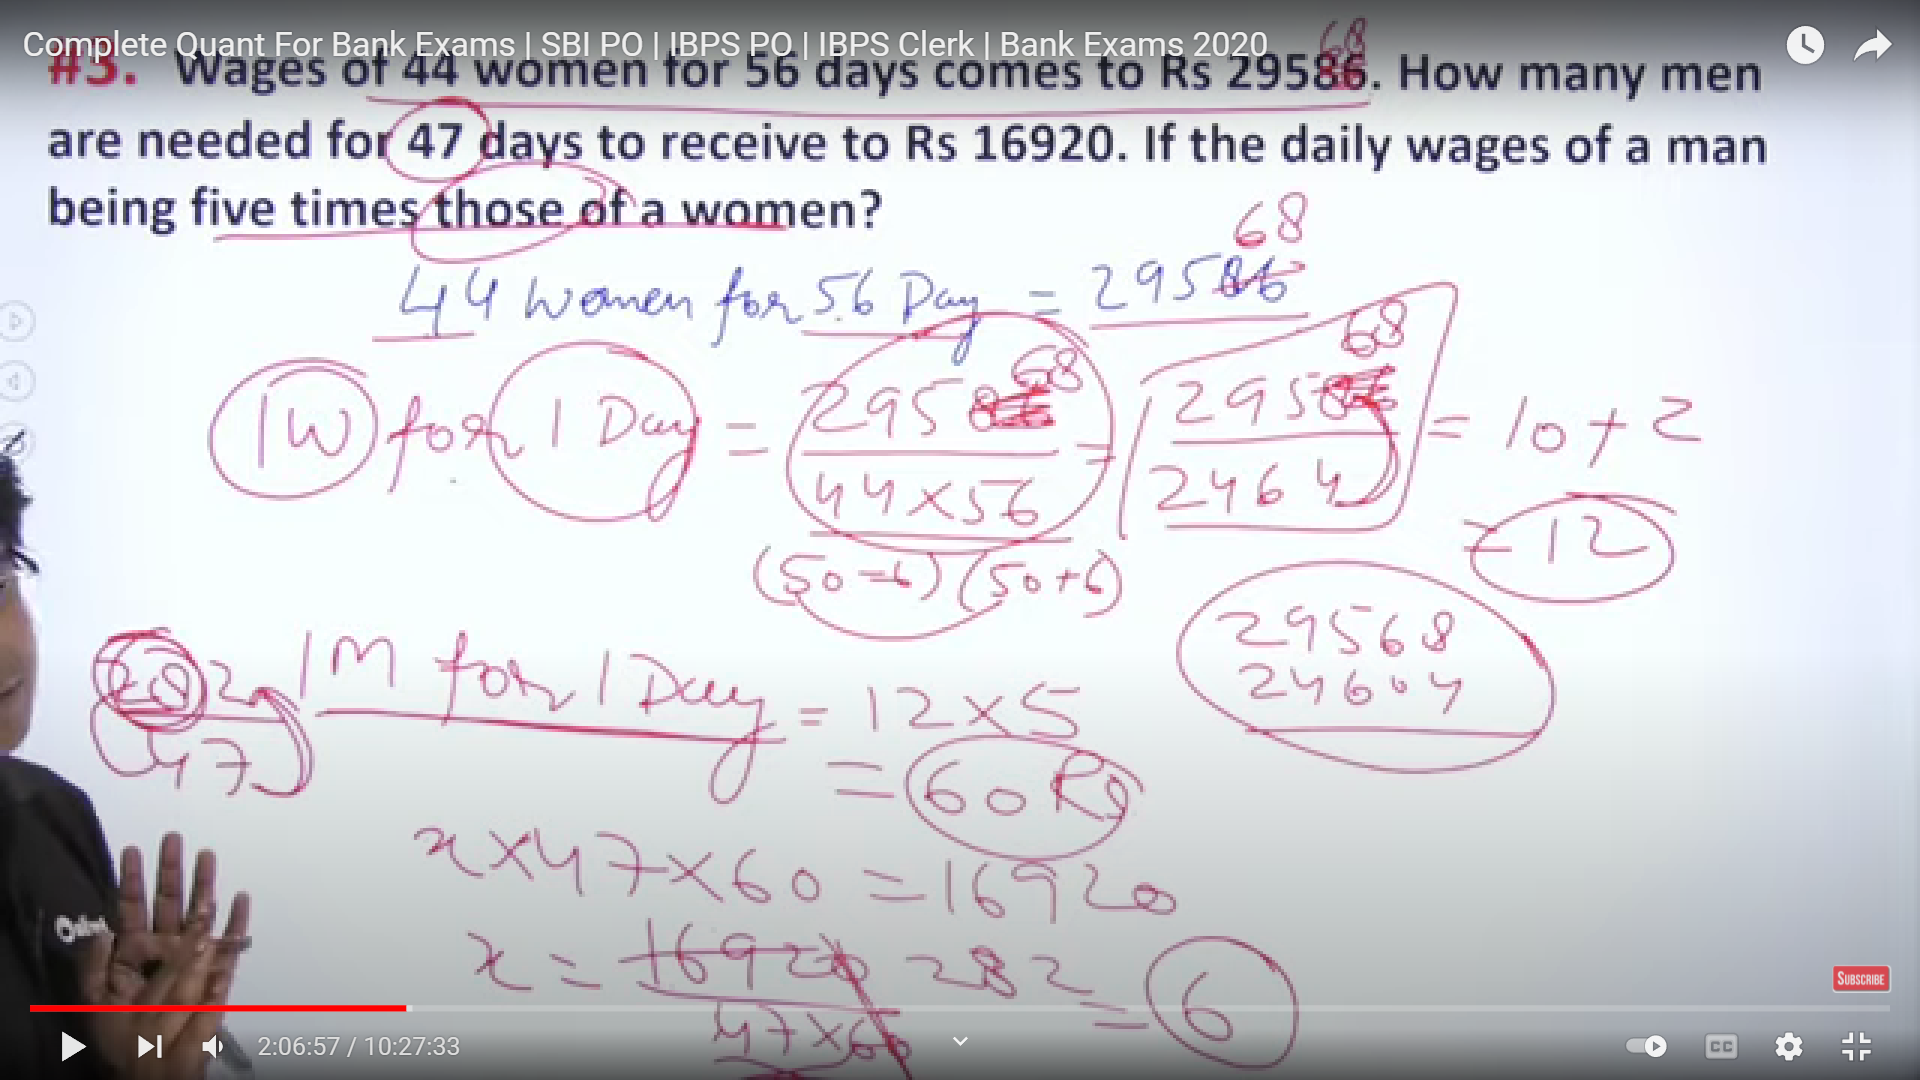 Complete Quant For Bank Exams | SBI PO | IBPS PO | IBPS Clerk | Bank Exams 2020
68
#3. Wages of 44 women for 56 days comes to Rs 29586. How many men
are needed for 47 days to receive to Rs 16920. If the daily wages of a man
being five times those of a women?
68
44 women for 56 Day = 29586
68 68
1W for 1 Day = 29586 = 29586 = 10 + 2
44×56 2464
= 12
(50-6) (50+6)
29568
24604
282 1M for 1 Day = 12×5
47
= 60 Rs
x×47×60 = 16920
x = 16920 282 = 6
47×60
SUBSCRIBE
2:06:57 / 10:27:33
CC